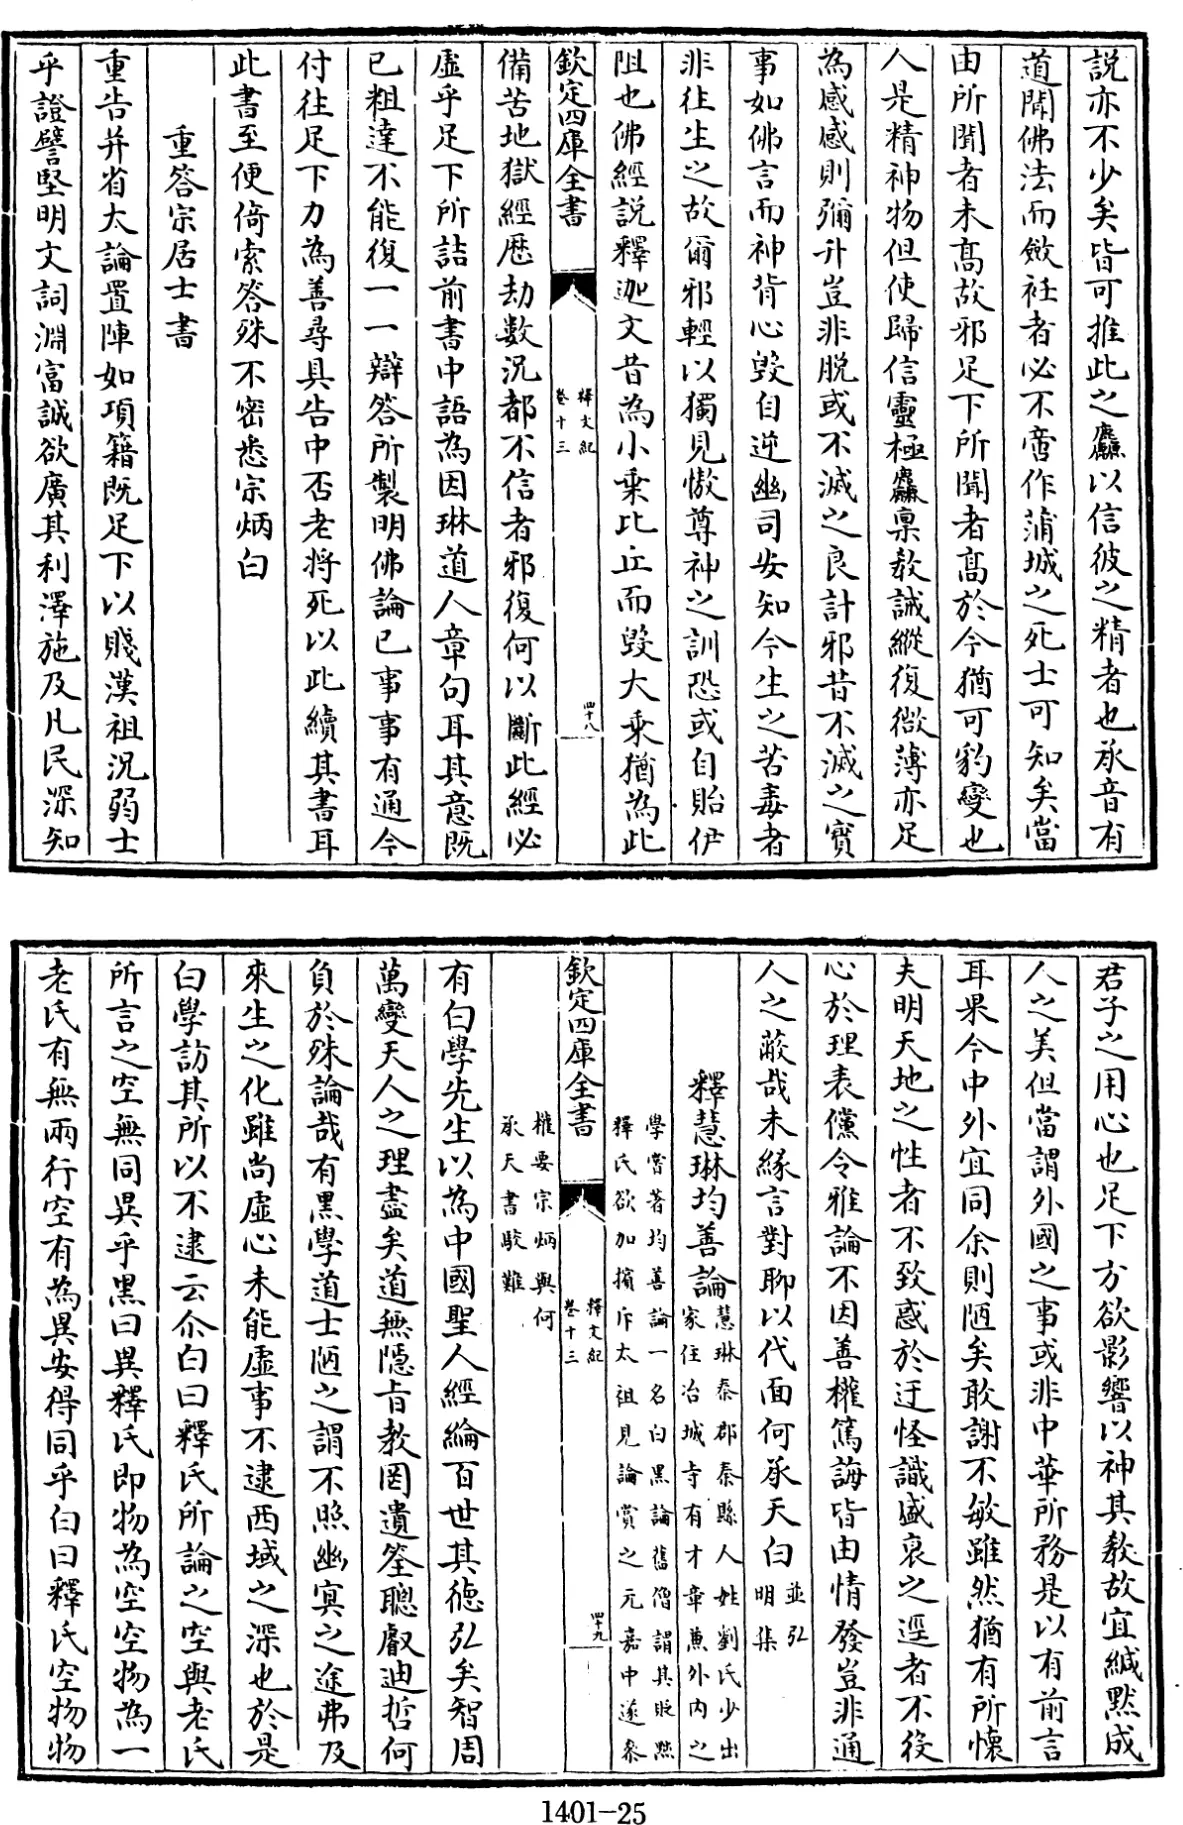 説亦不少矣皆可推此之麤以信彼之精者也承音有
道聞佛法而斂衽者必不啻作蒲城之死士可知矣當
由所聞者未高故邪足下所聞者高於今猶可豹變也
人是精神物但使歸信靈極麤稟教誡縱復微薄亦足
為感感則彌升豈非脱或不滅之良計邪昔不滅之寳
事如佛言而神背心毀自逆幽司安知今生之苦毒者
非徃生之故爾邪輕以獨見慠尊神之訓恐或自貽伊
阻也佛經説釋迦文昔為小乗比丘而毀大乗猶為此
欽定四庫全書
釋文紀
卷十三
四十八
備苦地獄經歴劫數況都不信者邪復何以斷此經必
虚乎足下所詰前書中語為因琳道人章句耳其意既
已粗達不能復一一辯答所製明佛論已事事有通今
付徃足下力為善尋具告中否老將死以此續其書耳
此書至便倚索答殊不密悉宗炳白
重答宗居士書
重告并省大論置陣如項籍既足下以賤漢祖況弱士
乎證譬堅明文詞淵富誠欲廣其利澤施及凡民深知
君子之用心也足下方欲影響以神其教故宜緘黙成
人之美但當謂外國之事或非中華所務是以有前言
耳果今中外宜同余則陋矣敢謝不敏雖然猶有所懐
夫明天地之性者不致惑於迂怪識盛衰之逕者不役
心於理表儻令雅論不因善權篤誨皆由情發豈非通
人之蔽哉未縁言對聊以代面何承天白並弘
明集
釋慧琳均善論慧琳秦郡秦縣人姓劉氏少出
家住冶城寺有才章兼外内之
學嘗著均善論一名白黑論舊僧謂其貶黜
釋氏欲加擯斥太祖見論賞之元嘉中遂參
權要宗炳與何
承天書駮難
欽定四庫全書
釋文紀
卷十三
四十九
有白學先生以為中國聖人經綸百世其徳弘矣智周
萬變天人之理盡矣道無隠㫖教罔遺筌聰叡迪哲何
負於殊論哉有黑學道士陋之謂不照幽冥之途弗及
來生之化雖尚虚心未能虚事不逮西域之深也於是
白學訪其所以不逮云尒白曰釋氏所論之空與老氏
所言之空無同異乎黑曰異釋氏即物為空空物為一
老氏有無兩行空有為異安得同乎白曰釋氏空物物
1401-25